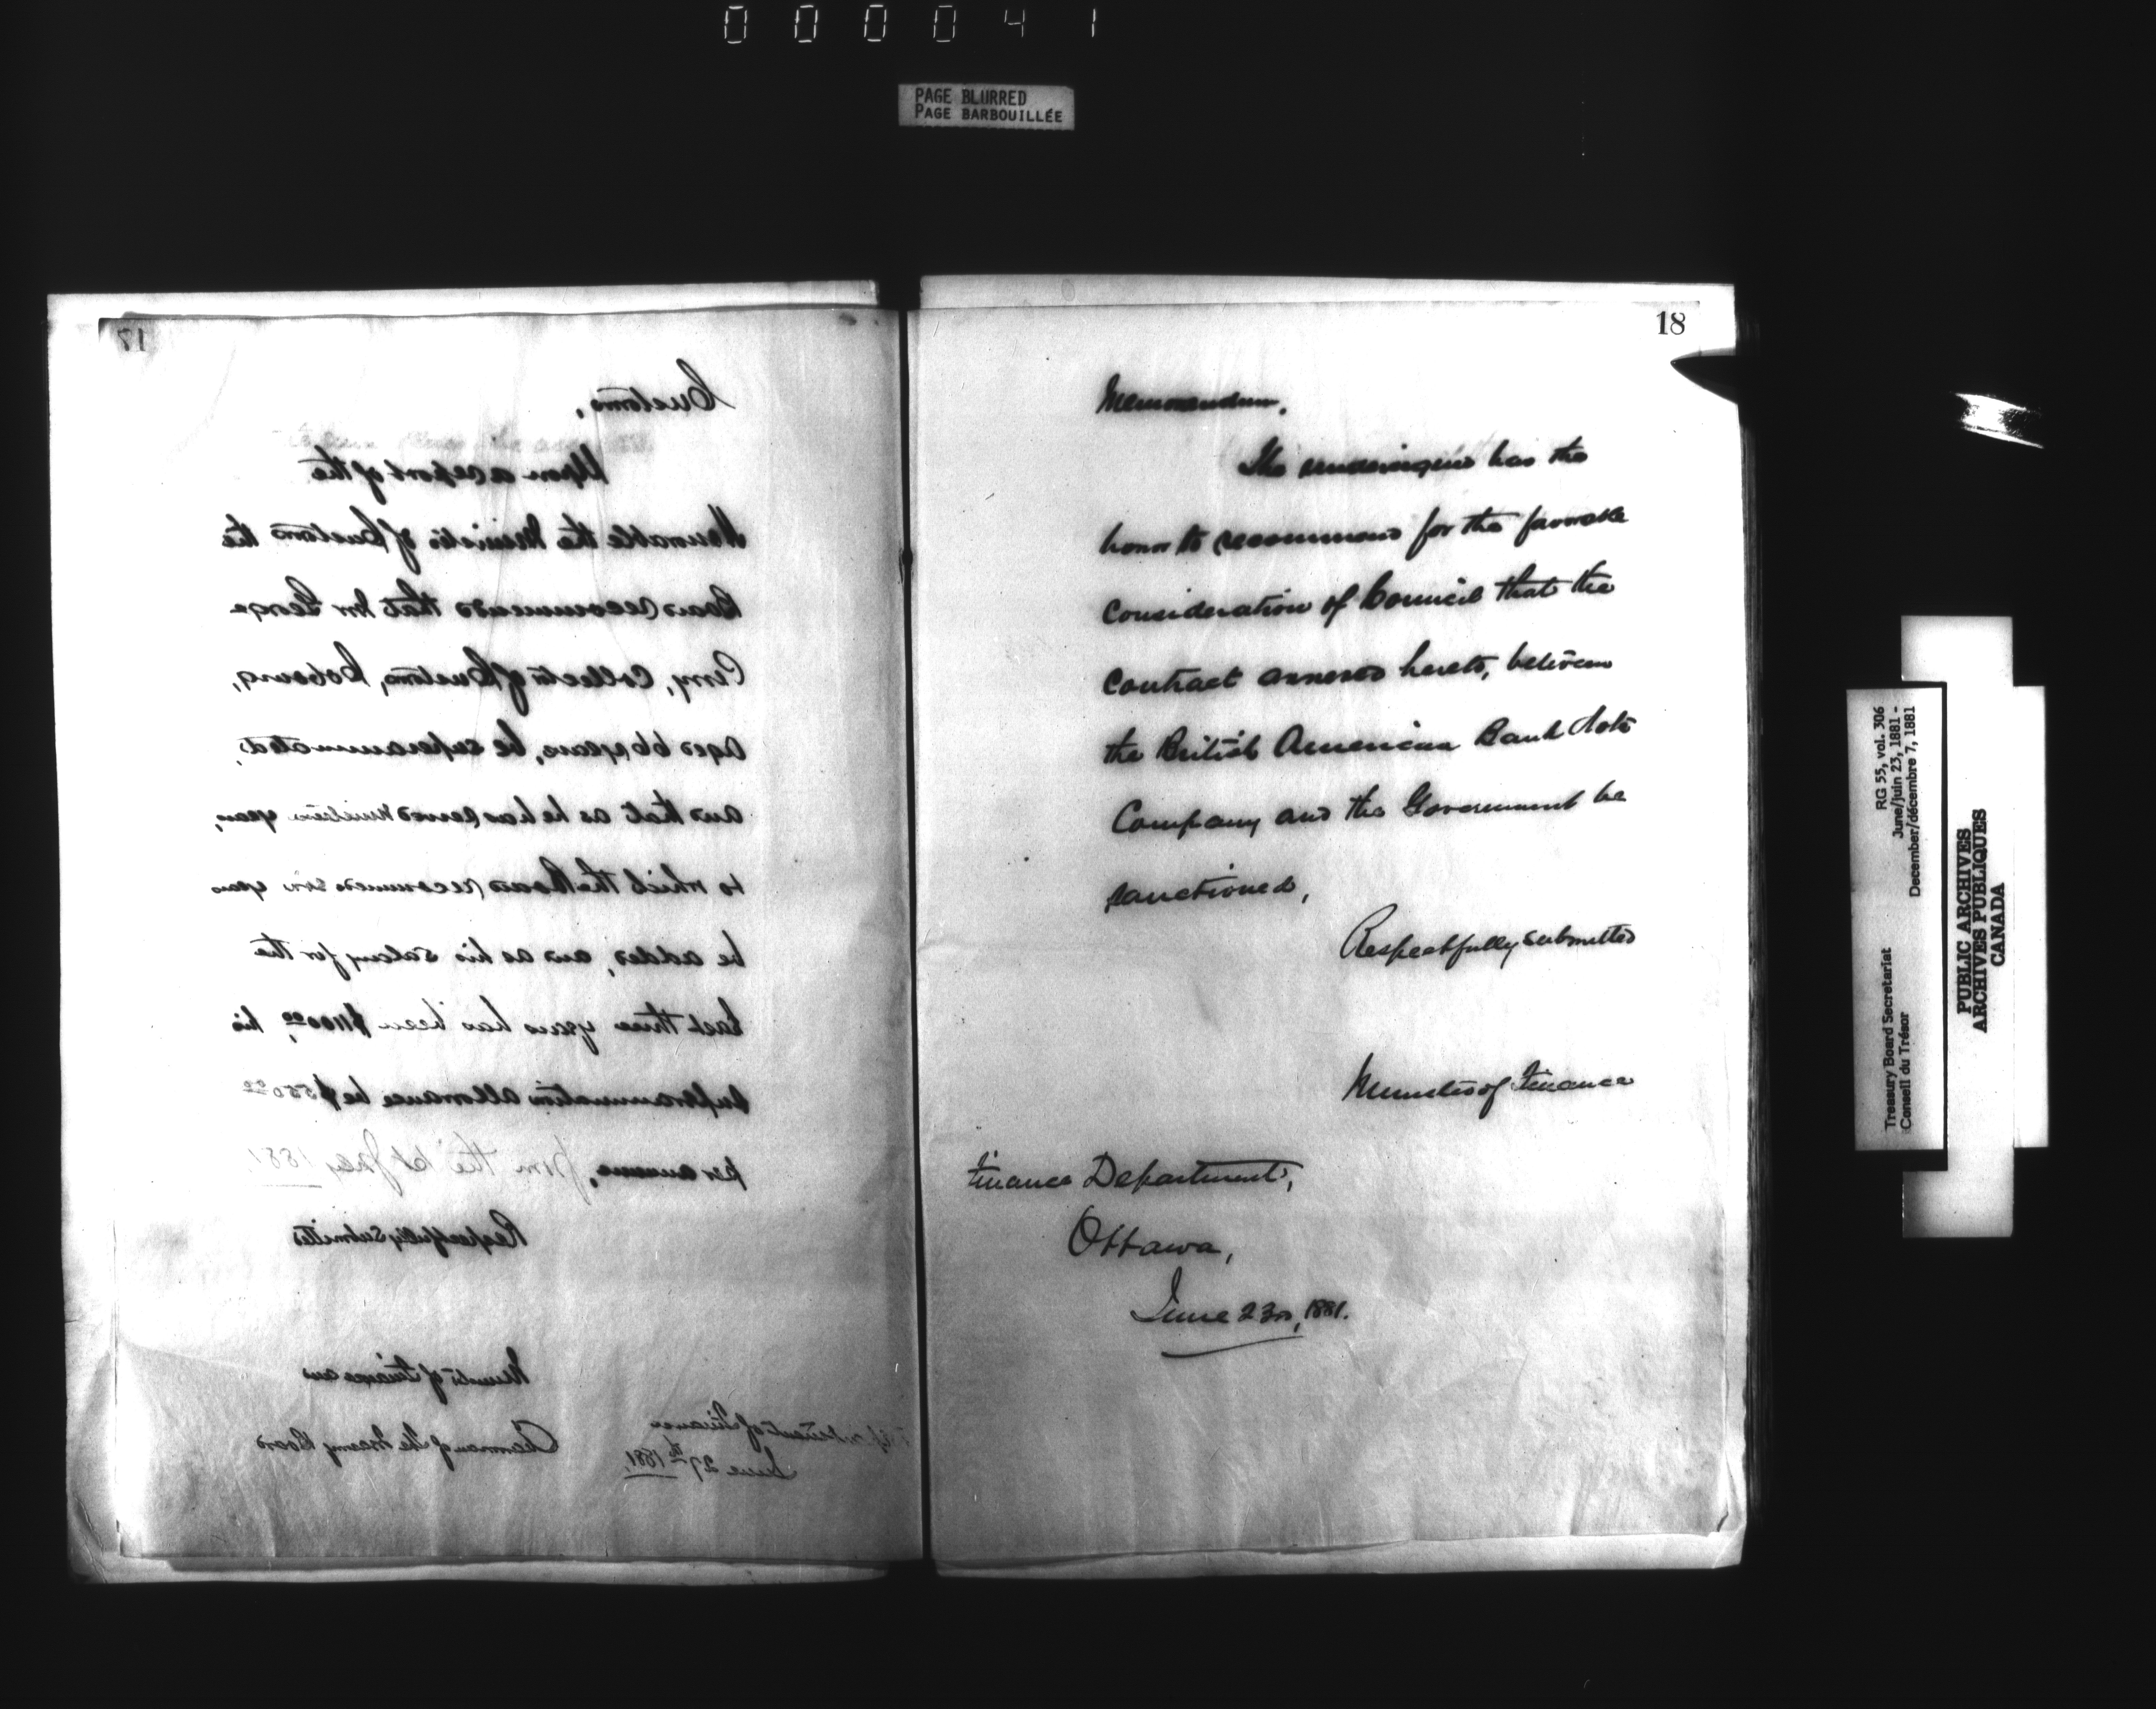 000041
PAGE BLURRED
PAGE BARBOUILLÉE
17
Customs,
Upon a report of the
Honorable the Minister of Customs the
Board recommends that Mr George
Perry, Collector of Customs, Cobourg,
aged 66 years, be superannuated,
and that as he has served nineteen years,
to which the Board recommends six years
be added, and as his salary for the
last three years has been $1100.00, his
superannuation allowance be $550.00
per annum, from the 1st July 1881.
Respectfully submitted
Minister of Finance and
Chairman of the Treasy Board
Department of Finance
June 27th 1881
18
Memorandum,
The undersigned has the
honor to recommend for the favorable
consideration of Council that the
contract annexed hereto, between
the British American Bank Note
Company and the Government be
sanctioned,
Respectfully submitted
Minister of Finance
Finance Department,
Ottawa,
June 23rd, 1881.
Treasury Board Secretariat
Conseil du Trésor
RG 55, vol. 306
June/juin 23, 1881 -
December/décembre 7, 1881
PUBLIC ARCHIVES
ARCHIVES PUBLIQUES
CANADA